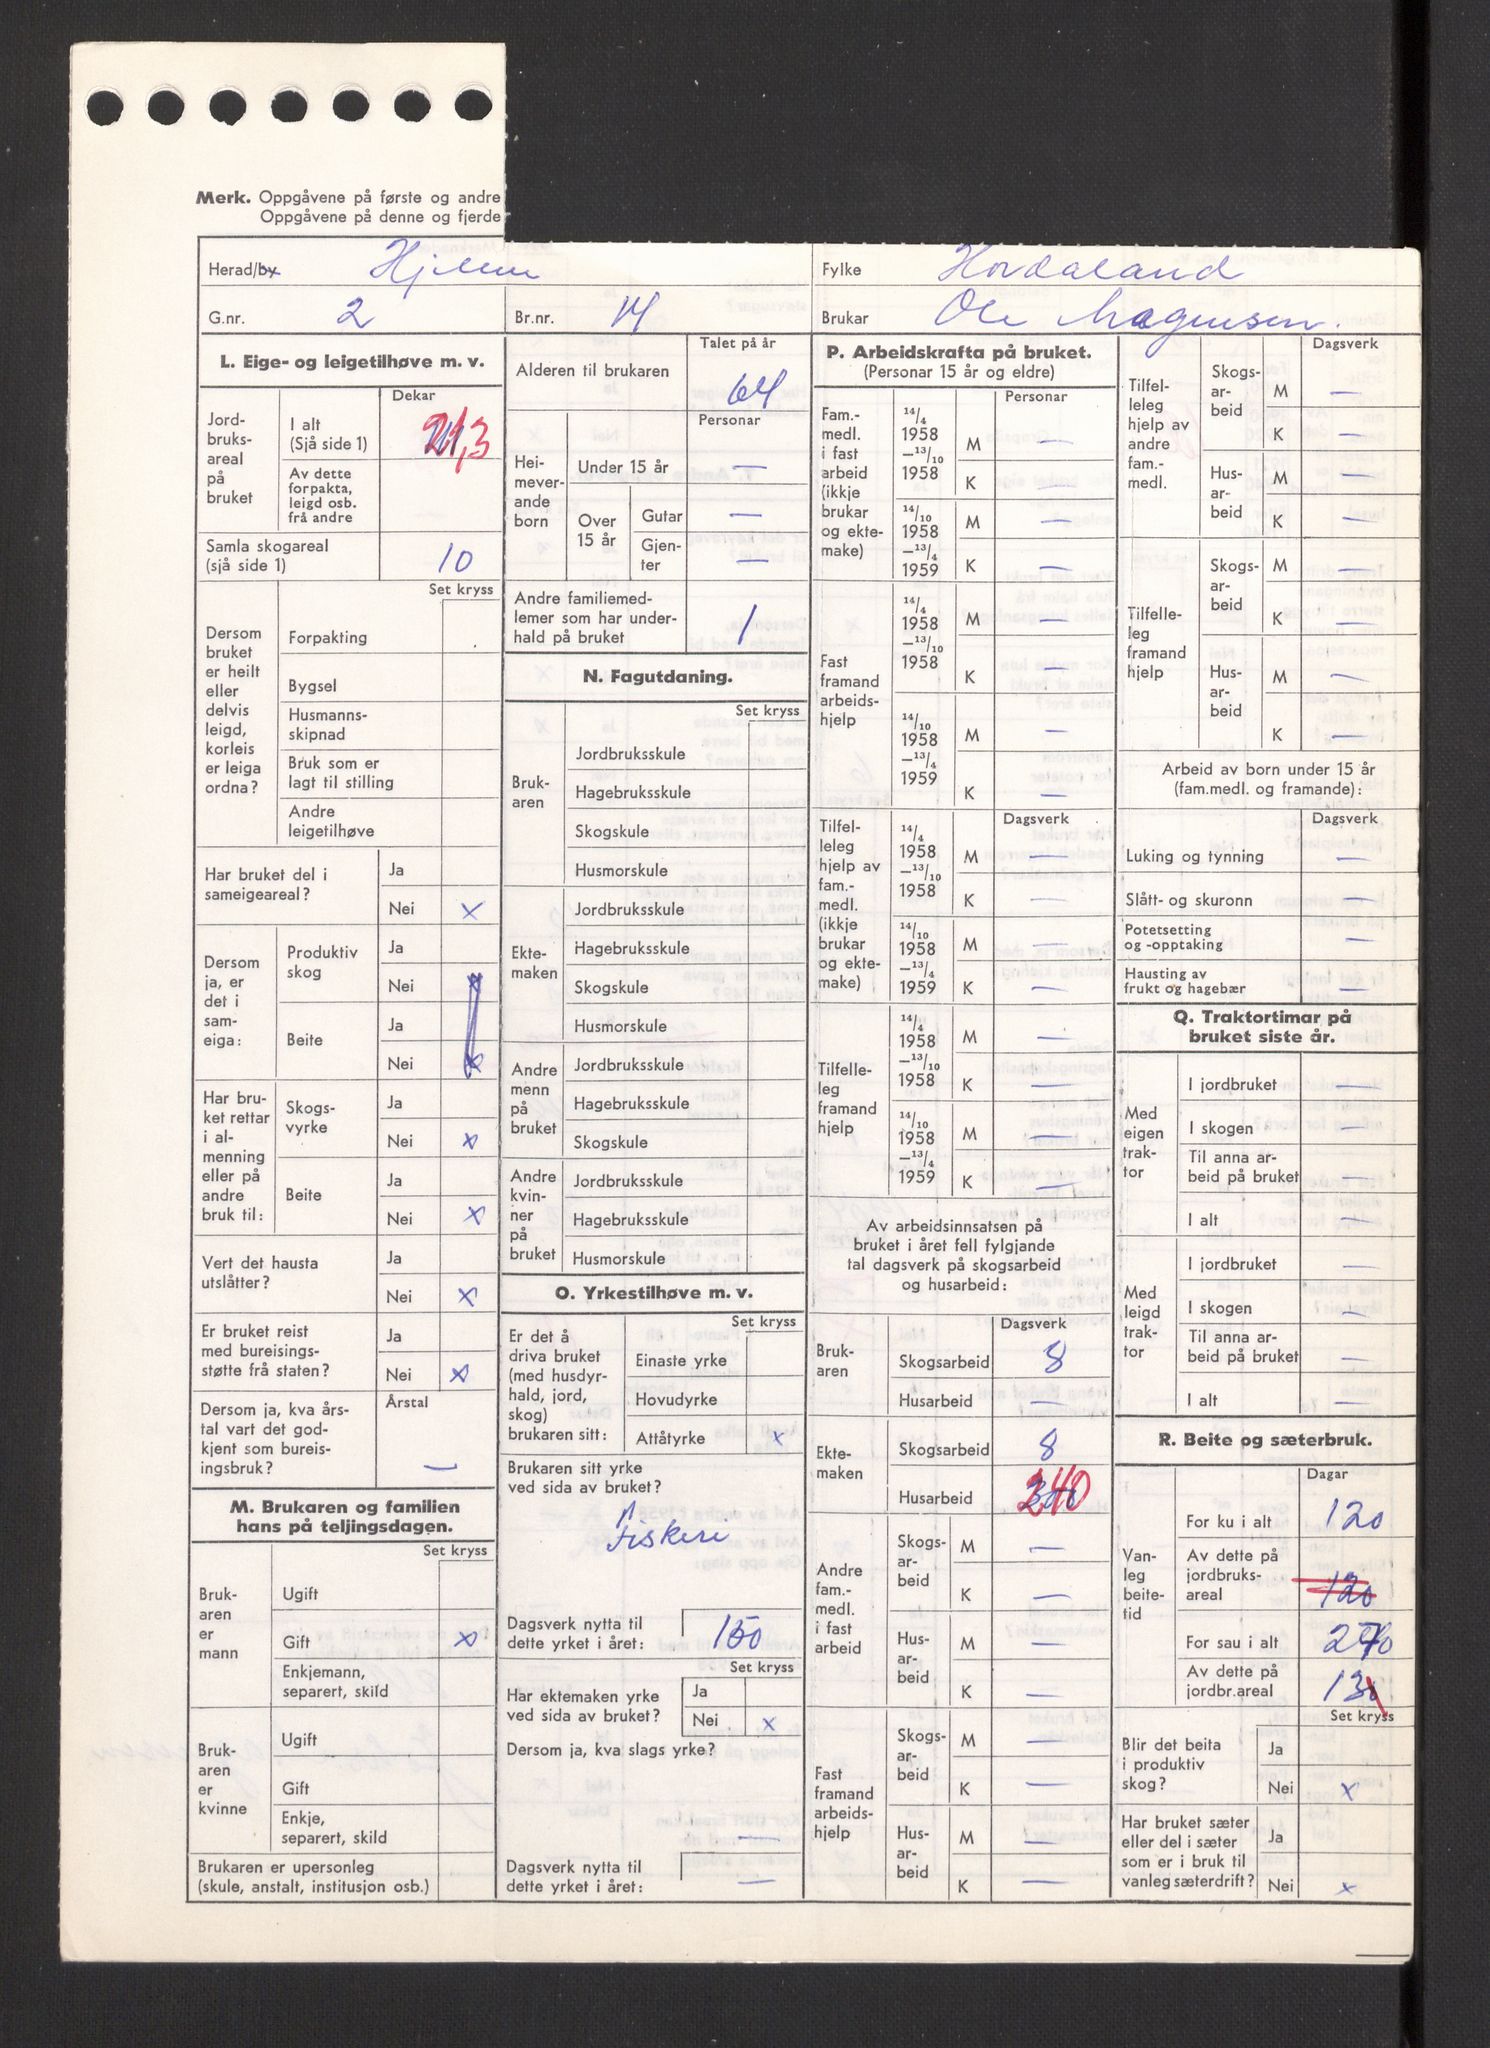 Merk. Oppgåvene på første og andre
Oppgåvene på denne og fjerde
Herad/by Hjelme
Fylke Hordaland
G.nr. 2
Br.nr. 14
Brukar Ole Magnusen.
L. Eige- og leigetilhøve m. v.
Dekar
Jord-
bruks-
areal
på
bruket
I alt
(Sjå side 1)
21,3
Av dette
forpakta,
leigd osb.
frå andre
Samla skogareal
(sjå side 1)
10
Set kryss
Dersom
bruket
er heilt
eller
delvis
leigd,
korleis
er leiga
ordna?
Forpakting
Bygsel
Husmanns-
skipnad
Bruk som er
lagt til stilling
Andre
leigetilhøve
Har bruket del i
sameigeareal?
Ja
Nei x
Dersom
ja, er
det i
sam-
eiga:
Produktiv
skog
Ja
Nei x
Beite
Ja
Nei x
Har bru-
ket rettar
i al-
menning
eller på
andre
bruk til:
Skogs-
vyrke
Ja
Nei x
Beite
Ja
Nei x
Vert det hausta
utslåtter?
Ja
Nei x
Er bruket reist
med bureisings-
støtte frå staten?
Ja
Nei x
Dersom ja, kva års-
tal vart det god-
kjent som bureis-
ingsbruk?
Årstal
—
M. Brukaren og familien
hans på teljingsdagen.
Set kryss
Bruk-
aren
er
mann
Ugift
Gift x
Enkjemann,
separert, skild
Bruk-
aren
er
kvinne
Ugift
Gift
Enkje,
separert, skild
Brukaren er upersonleg
(skule, anstalt, institusjon osb.)
Talet på år
Alderen til brukaren 64
Personar
Hei-
mever-
ande
born
Under 15 år —
Over
15 år
Gutar —
Gjen-
ter —
Andre familiemed-
lemer som har under-
hald på bruket 1
N. Fagutdaning.
Set kryss
Bruk-
aren
Jordbruksskule
Hagebruksskule
Skogskule
Husmorskule
Ekte-
maken
Jordbruksskule
Hagebruksskule
Skogskule
Husmorskule
Andre
menn
på
bruket
Jordbruksskule
Hagebruksskule
Skogskule
Andre
kvin-
ner
på
bruket
Jordbruksskule
Hagebruksskule
Husmorskule
O. Yrkestilhøve m. v.
Set kryss
Er det å
driva bruket
(med husdyr-
hald, jord,
skog)
brukaren sitt:
Einaste yrke
Hovudyrke
Attåtyrke x
Brukaren sitt yrke
ved sida av bruket?
Fiskeri
Dagsverk nytta til
dette yrket i året: 150
Set kryss
Har ektemaken yrke
ved sida av bruket?
Ja
Nei x
Dersom ja, kva slags yrke?
—
Dagsverk nytta til
dette yrket i året: —
P. Arbeidskrafta på bruket.
(Personar 15 år og eldre)
Personar
Fam.-
medl.
i fast
arbeid
(ikkje
brukar
og ekte-
make)
14/4
1958
—13/10
1958
M —
K —
14/10
1958
—13/4
1959
M —
K —
Fast
framand
arbeids-
hjelp
14/4
1958
—13/10
1958
M —
K —
14/10
1958
—13/4
1959
M —
K —
Dagsverk
Tilfel-
leleg
hjelp av
fam.-
medl.
(ikkje
brukar
og ekte-
make)
14/4
1958
—13/10
1958
M —
K —
14/10
1958
—13/4
1959
M —
K —
Tilfelle-
leg
framand
hjelp
14/4
1958
—13/10
1958
M —
K —
14/10
1958
—13/4
1959
M —
K —
Av arbeidsinnsatsen på
bruket i året fell fylgjande
tal dagsverk på skogsarbeid
og husarbeid:
Dagsverk
Bruk-
aren
Skogsarbeid 8
Husarbeid
Ekte-
maken
Skogsarbeid 8
Husarbeid 240
Andre
fam.-
medl.
i fast
arbeid
Skogs-
ar-
beid
M —
K —
Hus-
ar-
beid
M —
K —
Fast
framand
arbeids-
hjelp
Skogs-
ar-
beid
M —
K —
Hus-
ar-
beid
M —
K —
Dagsverk
Tilfel-
leleg
hjelp av
andre
fam.-
medl.
Skogs-
ar-
beid
M —
K —
Hus-
ar-
beid
M —
K —
Tilfelle-
leg
framand
hjelp
Skogs-
ar-
beid
M —
K —
Hus-
ar-
beid
M —
K —
Arbeid av born under 15 år
(fam.medl. og framande):
Dagsverk
Luking og tynning —
Slått- og skuronn —
Potetsetting
og -opptaking —
Hausting av
frukt og hagebær —
Q. Traktortimar på
bruket siste år.
Med
eigen
trak-
tor
I jordbruket —
I skogen —
Til anna ar-
beid på bruket —
I alt —
Med
leigd
trak-
tor
I jordbruket —
I skogen —
Til anna ar-
beid på bruket —
I alt —
R. Beite og sæterbruk.
Dagar
Van-
leg
beite-
tid
For ku i alt 120
Av dette på
jordbruks-
areal 120
For sau i alt 270
Av dette på
jordbr.areal
Set kryss
Blir det beita
i produktiv
skog?
Ja
Nei x
Har bruket sæter
eller del i sæter
som er i bruk til
vanleg sæterdrift?
Ja
Nei x